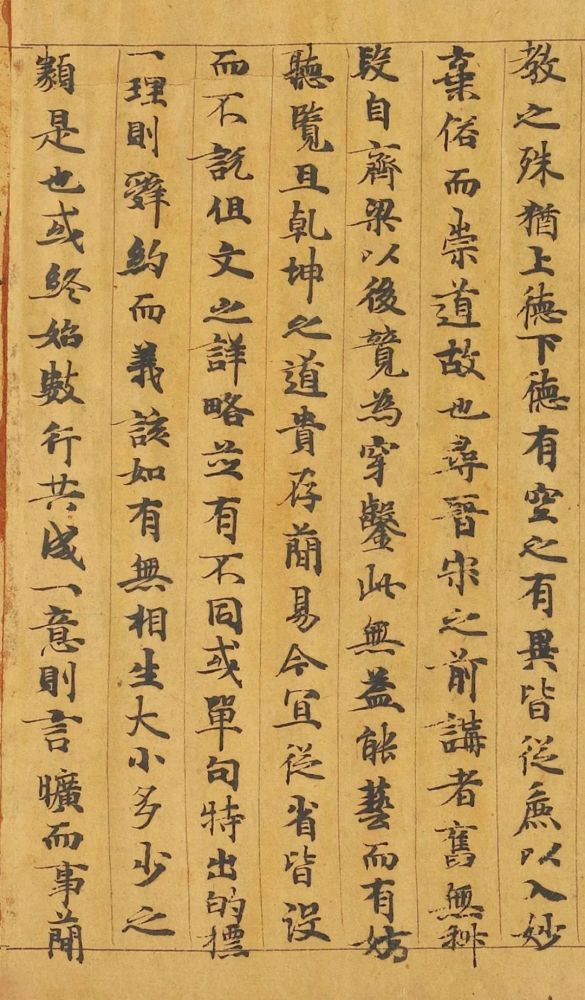 教之殊猶上德下德有空之有異皆從無以入妙
棄俗而崇道故也尋晉宋之前講者舊無科
段自齊梁以後競為穿鑿此無益能藝而有妨
聽覽且乾坤之道貴存簡易今宜從省皆没
而不說但文之詳略並有不同或單句特出的標
一理則辞約而義該如有無相生大小多少之
類是也或終始數行共成一意則言曠而事簡